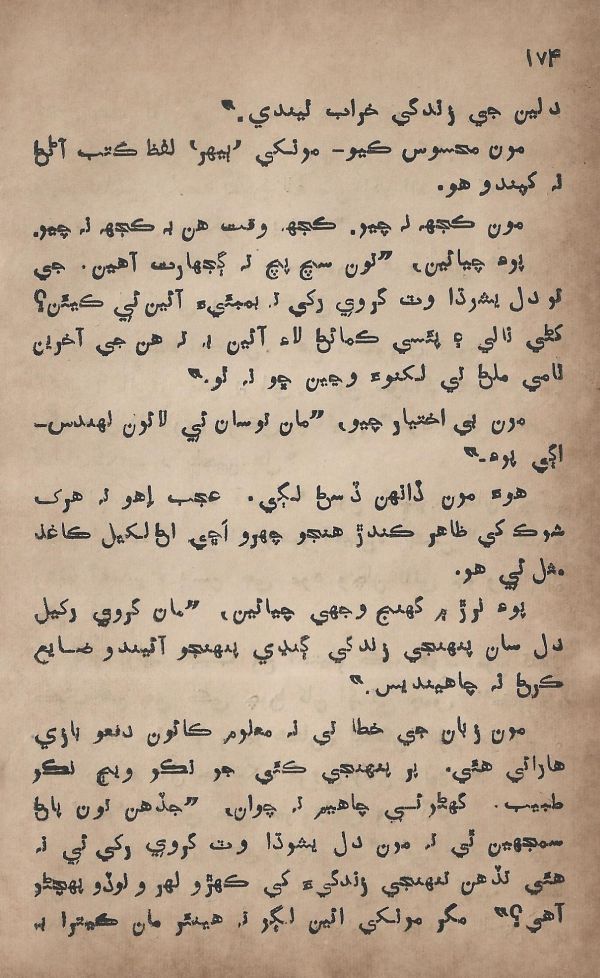 ١٧۴
دلين جي زندگي خراب ٿيندي.”
مون محسوس ڪيو– مونکي ’ٻيهر‘ لفظ ڪتب آڻڻ
نہ کپندو هو.
مون ڪجهہ نہ چيو. ڪجهہ وقت هن بہ ڪجهہ نہ چيو.
پوءِ چيائين، ”تون سچ پچ تہ ڳجهارت آهين. جي
تو دل يشوڌا وٽ گروي رکي تہ بمبئيءَ آئين ئي ڪيئن؟
کڻي نالي ۽ پئسي ڪمائڻ لاءِ آئين بہ، تہ هن جي آخرين
ٽامي ملڻ تي لکنوءَ وڃين ڇو نہ ٿو.”
مون بي اختيار چيو، ”مان توسان ئي لائون لهندس–
اڳي پوءِ.”
هوءَ مون ڏانهن ڏسڻ لڳي. عجب اهو تہ هرڪ
شوڪ کي ظاهر ڪندڙ هنجو چهرو اڇي اڻ لکيل ڪاغذ
مثل ئي هو.
پوءِ نرڙ ۾ گهنج وجهي چيائين، ”مان گروي رکيل
دل سان پنهنجي زندگي ڳنڍي پنهنجو آئيندو ضايع
ڪرڻ نہ چاهينديس.”
مون زبان جي خطا تي نہ معلوم ڪائون دفعو بازي
هارائي هئي. پر پنهنجي ڪئي جو نڪو ويڄ نڪو
طبيب. گهڻو ئي چاهيم تہ چوان، ”جڏهن تون پاڻ
سمجهين ٿي تہ مون دل يشوڌا وٽ گروي رکي ٿي تہ
هئي تڏهن تنهنجي زندگيءَ کي ڪهڙو لهر و لوڏو پهچڻو
آهي؟” مگر مونکي ائين لڳو تہ هينئر مان ڪيترا بہ